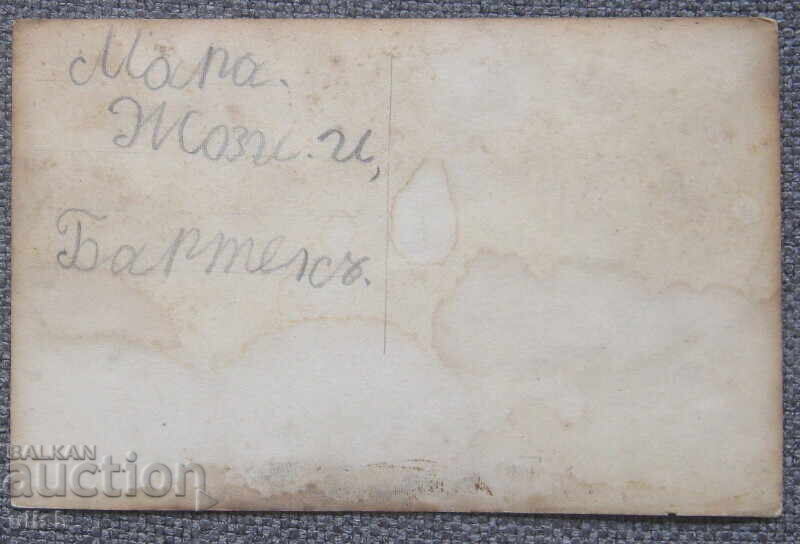 Мара.
Жози. и,
Бартекъ.
BALKAN
auction